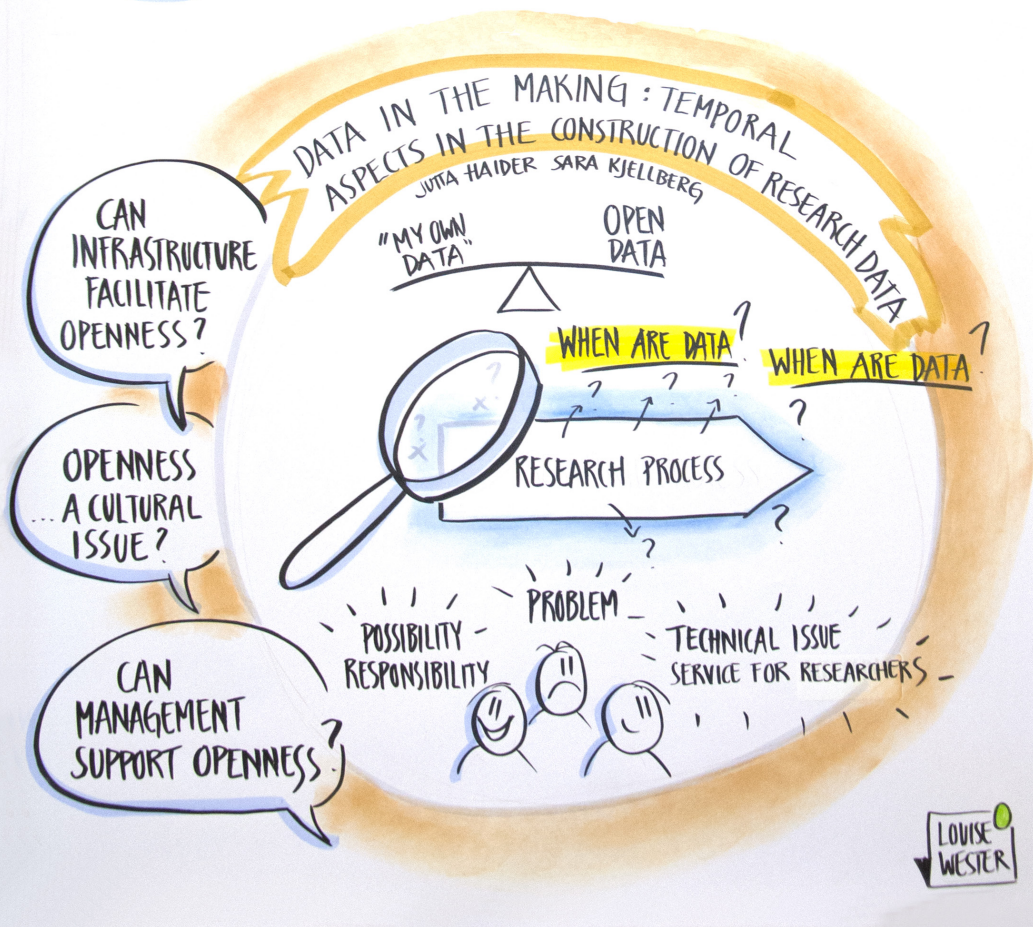 DATA IN THE MAKING : TEMPORAL
ASPECTS IN THE CONSTRUCTION OF RESEARCH DATA
JUTTA HAIDER SARA KJELLBERG
"MY OWN
DATA"
OPEN
DATA
CAN
INFRASTRUCTURE
FACILITATE
OPENNESS?
WHEN ARE DATA?
WHEN ARE DATA?
? ? ?
?
? ?
x
x
RESEARCH PROCESS
?
?
OPENNESS
...A CULTURAL
ISSUE?
PROBLEM
POSSIBILITY
RESPONSIBILITY
TECHNICAL ISSUE
SERVICE FOR RESEARCHERS
CAN
MANAGEMENT
SUPPORT OPENNESS?
LOUISE
WESTER